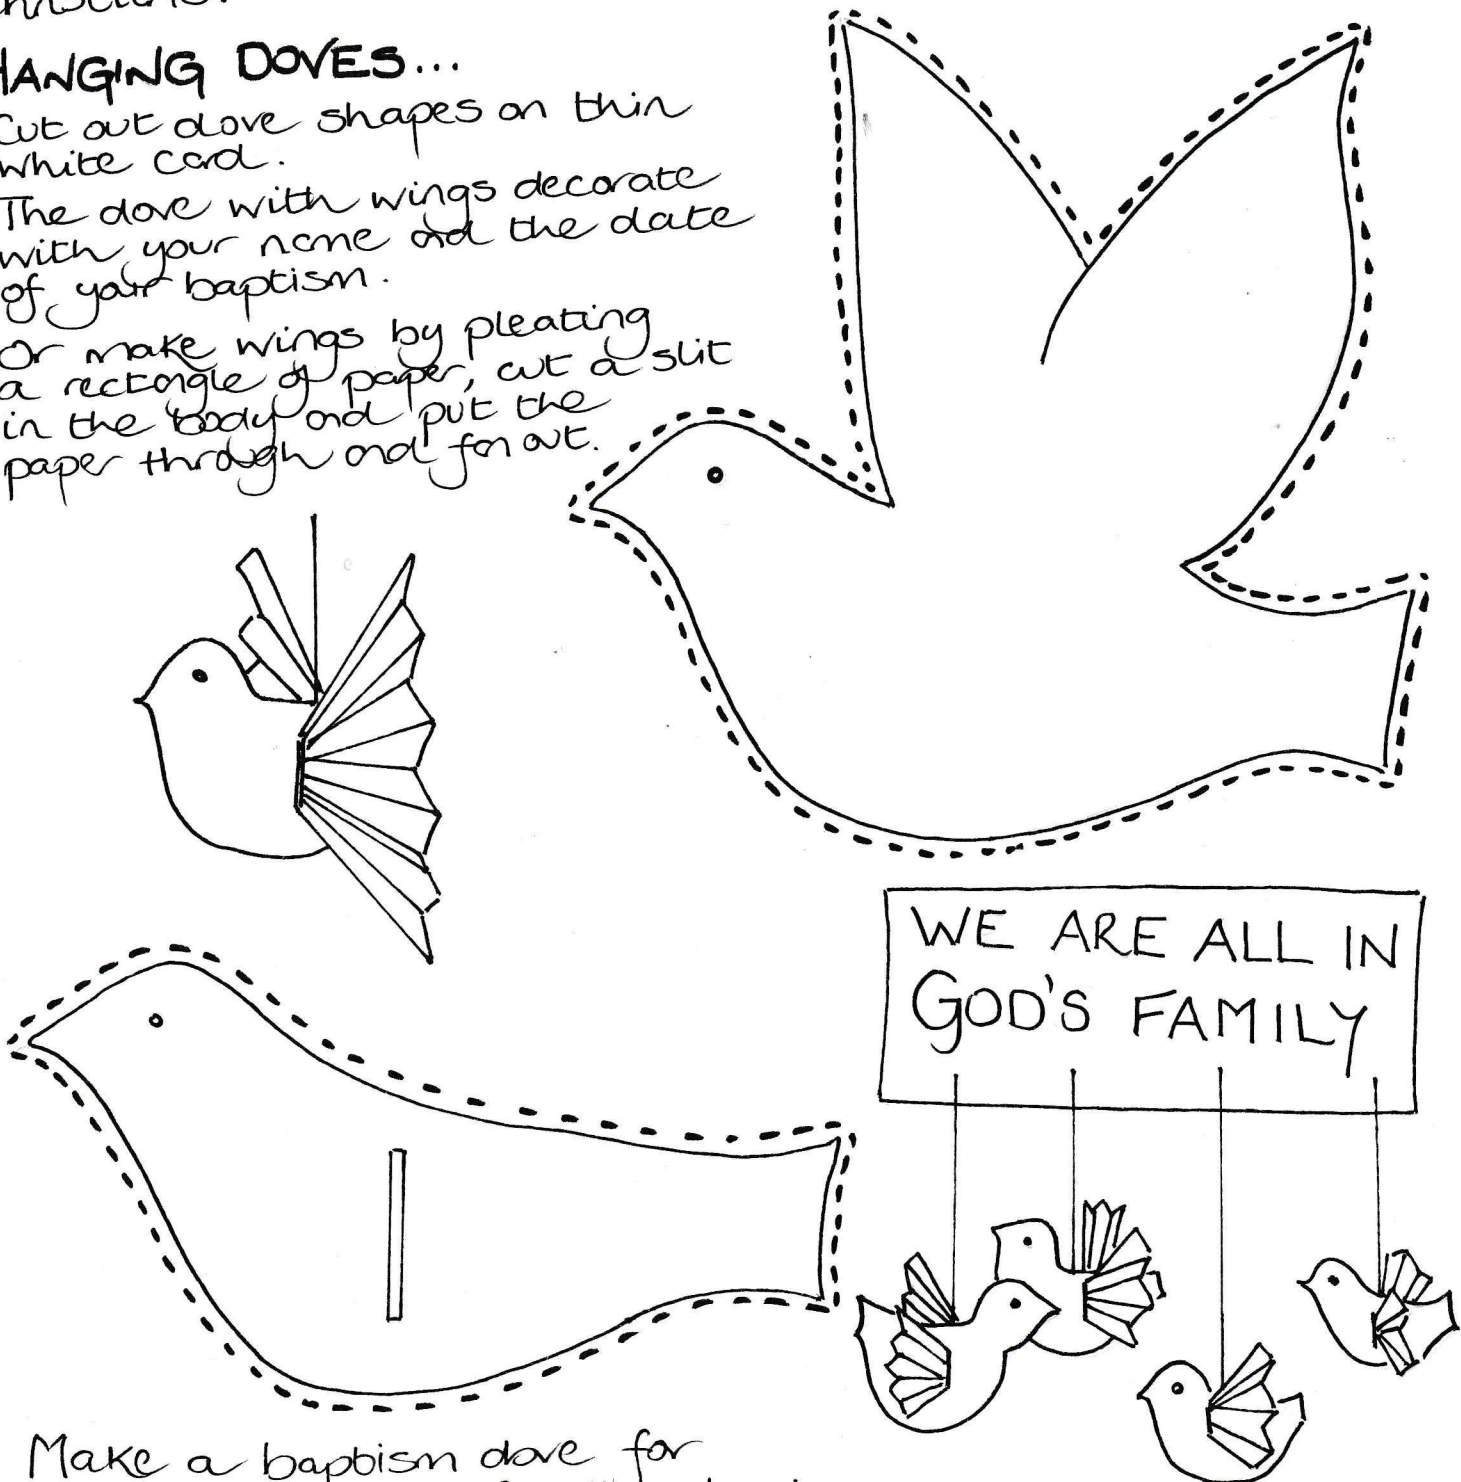 HANGING DOVES...
Cut out dove shapes on thin
white card.
The dove with wings decorate
with your name and the date
of your baptism.
Or make wings by pleating
a rectangle of paper, cut a slit
in the body and put the
paper through and fan out.
WE ARE ALL IN
GOD'S FAMILY
Make a baptism dove for